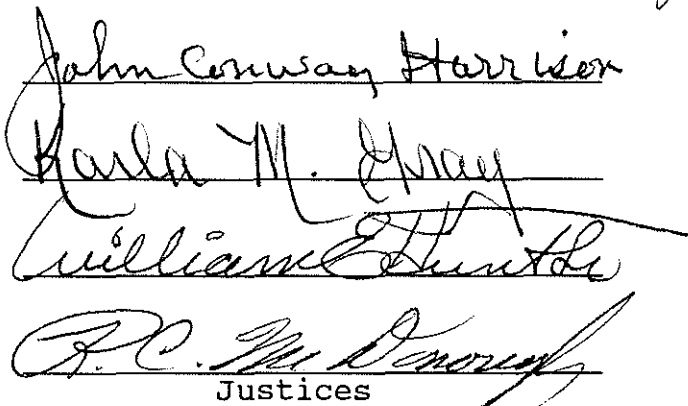 John Conway Harrison
Karla M. Gray
William E Hunt Sr
R. C. McDonough
Justices